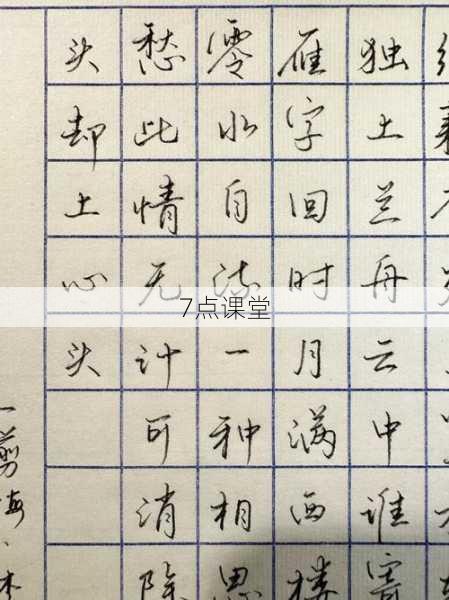 独上兰舟云中谁寄
雁字回时月满西楼
零水自流一种相思
愁此情无计可消除
头却上心头
一剪梅·李
7点课堂